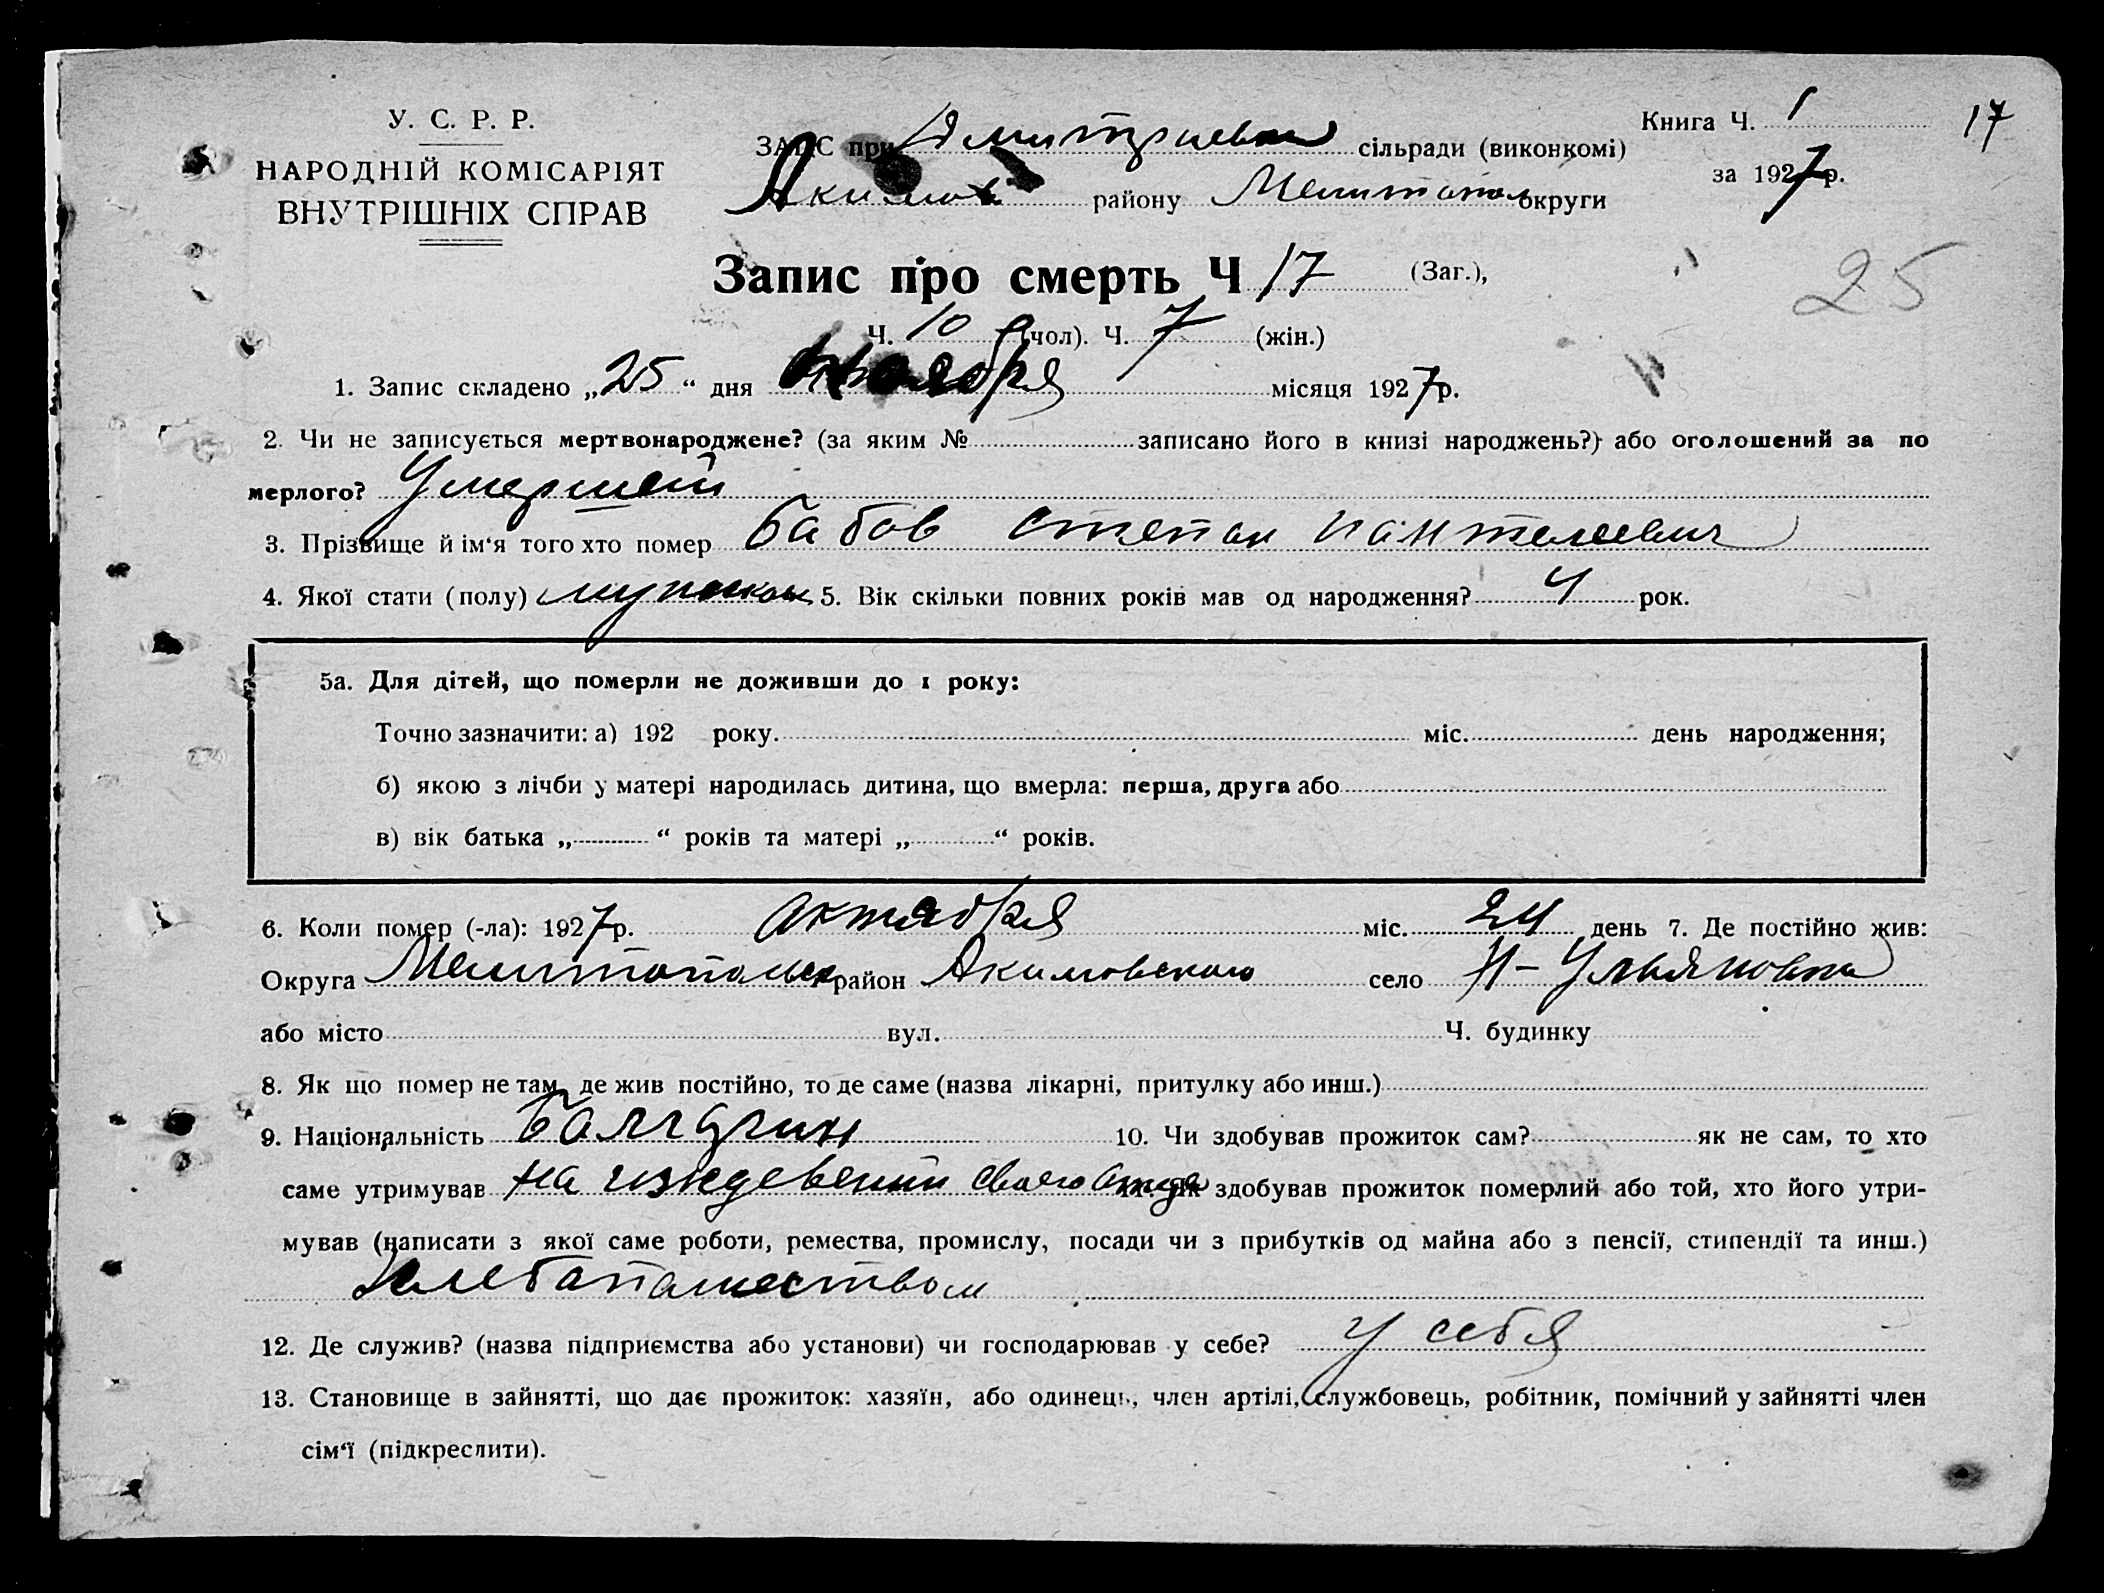 У. С. Р. Р.
НАРОДНІЙ КОМІСАРІЯТ
ВНУТРІШНІХ СПРАВ
Книга Ч. 1
17
ЗАГС при Дмитриевки сільради (виконкомі)
за 1927 р.
Акимов району Мелитопол округи
Запис про смерть Ч 17 (Заг.),
25
Ч. 10 (чол). Ч. 7 (жін.)
1. Запис складено „25“ дня ноября місяця 1927 р.
2. Чи не записується мертвонароджене? (за яким № записано його в книзі народжень?) або оголошений за по
мерлого? Умерший
3. Прізвище й ім‘я того хто помер Бабов Степан Пантелеевич
4. Якої стати (полу) мужской 5. Вік скільки повних років мав од народження? 4 рок.
5а. Для дітей, що померли не доживши до 1 року:
Точно зазначити: а) 192 року. міс. день народження;
б) якою з лічби у матері народилась дитина, що вмерла: перша, друга або
в) вік батька „ “ років та матері „ “ років.
6. Коли помер (-ла): 1927 р. октября міс. 24 день 7. Де постійно жив:
Округа Мелитопольск район Акимовского село Н-Ульяновка
або місто вул. Ч. будинку
8. Як що помер не там, де жив постійно, то де саме (назва лікарні, притулку або инш.)
9. Національність Балгарин 10. Чи здобував прожиток сам? як не сам, то хто
саме утримував на иждевении своего отца 11. Як здобував прожиток померлий або той, хто його утри-
мував (написати з якої саме роботи, ремества, промислу, посади чи з прибутків од майна або з пенсії, стипендії та инш.)
Хлебапашеством
12. Де служив? (назва підприємства або установи) чи господарював у себе? у себя
13. Становище в зайнятті, що дає прожиток: хазяїн, або одинець, член артілі, службовець, робітник, помічний у зайнятті член
сім‘ї (підкреслити).